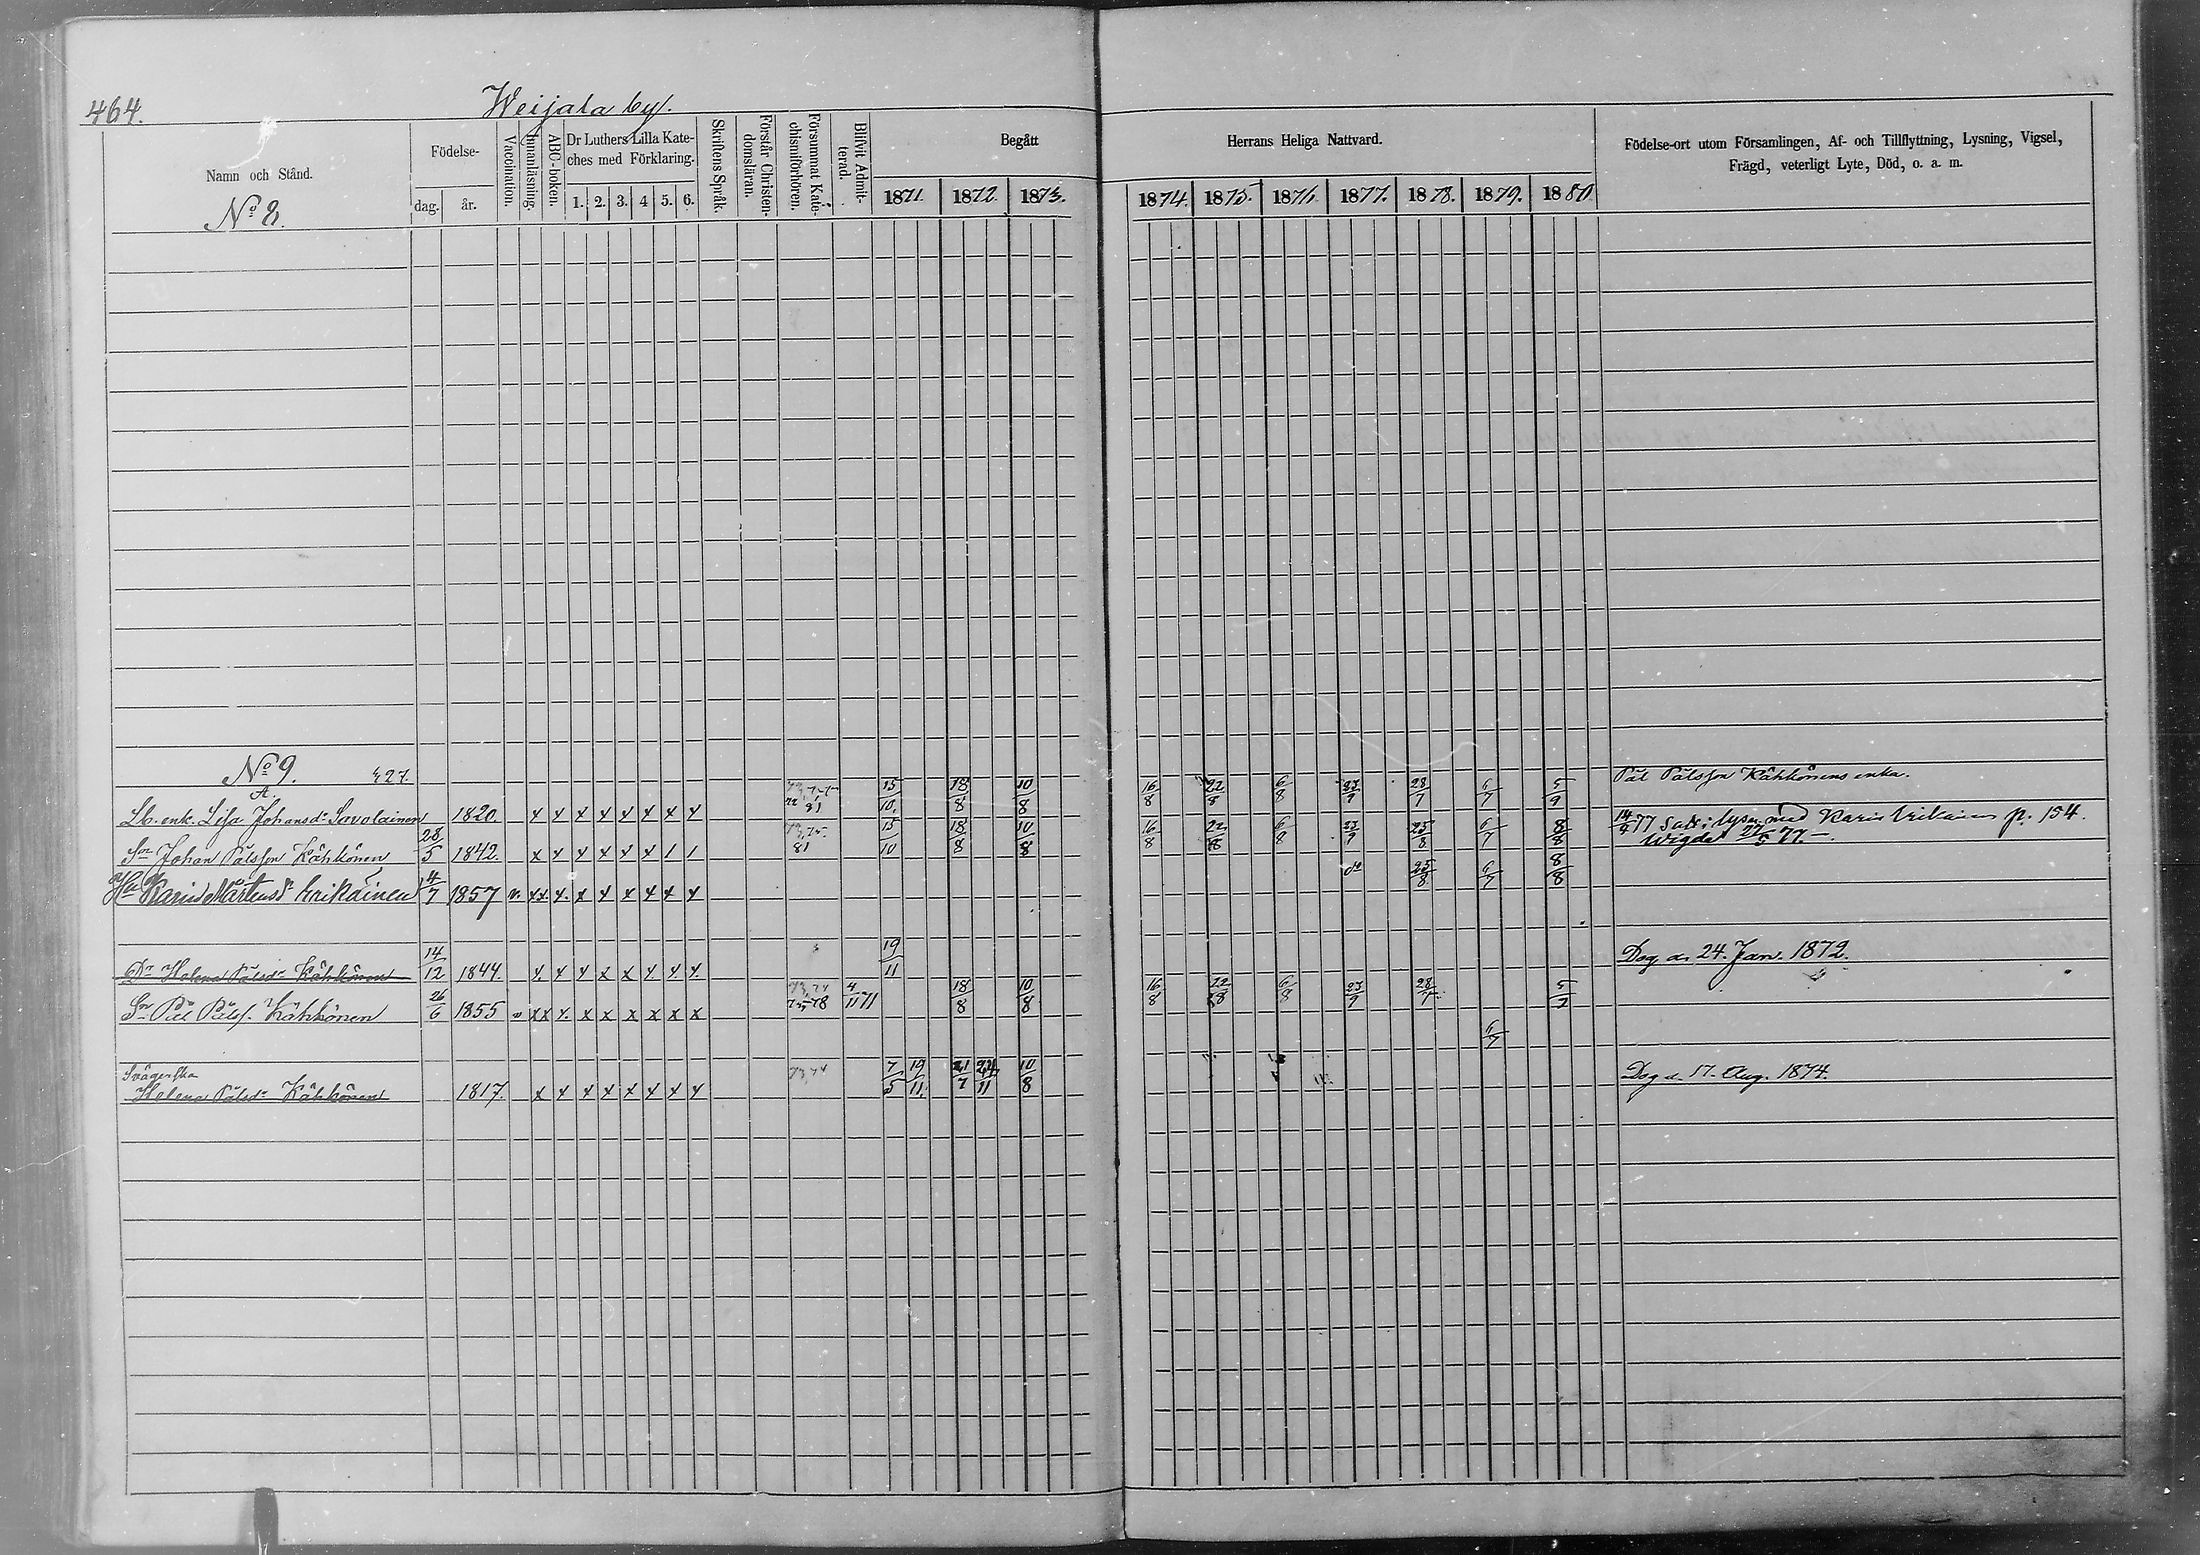 464.
Weijala by.
Namn och Stånd.
Födelse-
dag.
år.
Vaccination.
Innanläsning.
ABC-boken.
Dr Luthers Lilla Kate-
ches med Förklaring.
1. 2. 3. 4 5. 6.
Skriftens Språk.
Förstår Christen-
domsläran.
Försummat Kate-
chismiförhören.
Blifvit Admit-
terad.
Begått
Herrans Heliga Nattvard.
1871. 1872. 1873. 1874. 1875. 1876. 1877. 1878. 1879. 1880
Födelse-ort utom Församlingen, Af- och Tillflyttning, Lysning, Vigsel,
Frägd, veterligt Lyte, Död, o. a. m.
No 8.
No 9.
427.
A.
Lb. enk. Lisa Johansdr Savolainen 1820. x x x x x x x x 81 15/10. 18/8 10/8 16/8 22/8 6/8 23/9 28/7 6/7 5/9 Pål Pålsson Kähkönens enka.
Son Johan Pålsson Kähkönen 28/5 1842. x x x x x x 1 1 81 15/10 18/8 10/8 16/8 22/8 6/8 23/9 25/8 6/7 8/8 14/4 77 lysn med Karin Erikäinen p. 154.
Wigde 27/5 77.
Hu Karin Mårtensdr Erikäinen 4/7 1857 v. xx x. x x x x x x do 25/8 6/7 8/8
Dr Helena Pålsdr Kähkönen 14/12 1844. x x x x x x x x 19/11 Dog d. 24. Jan. 1872.
Son Pål Pålss. Kähkönen 26/6 1855 v xx x. x x x x x x 73, 74 75, 78 4/11 71 18/8 10/8 16/8 22/8 6/8 23/9 28/7 5/7
6/7
Svägerska
Helena Pålsdr Kähkönen 1817. x x x x x x x x 73, 74 7/5 19/11. 21/7 24/11 10/8 Dog d. 17. Aug. 1874.